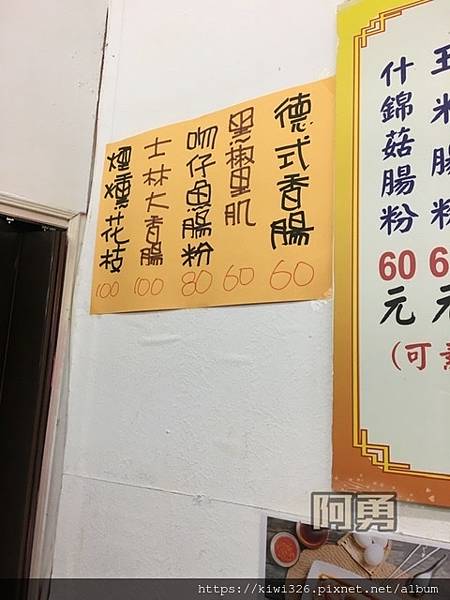 德式香腸 60
黑椒里肌 60
吻仔魚腸粉 80
士林大香腸 100
煙燻花枝 100
玉米腸粉 6
什錦菇腸粉 60元
元
(可素
阿勇
https://kiwi326.pixnet.net/album